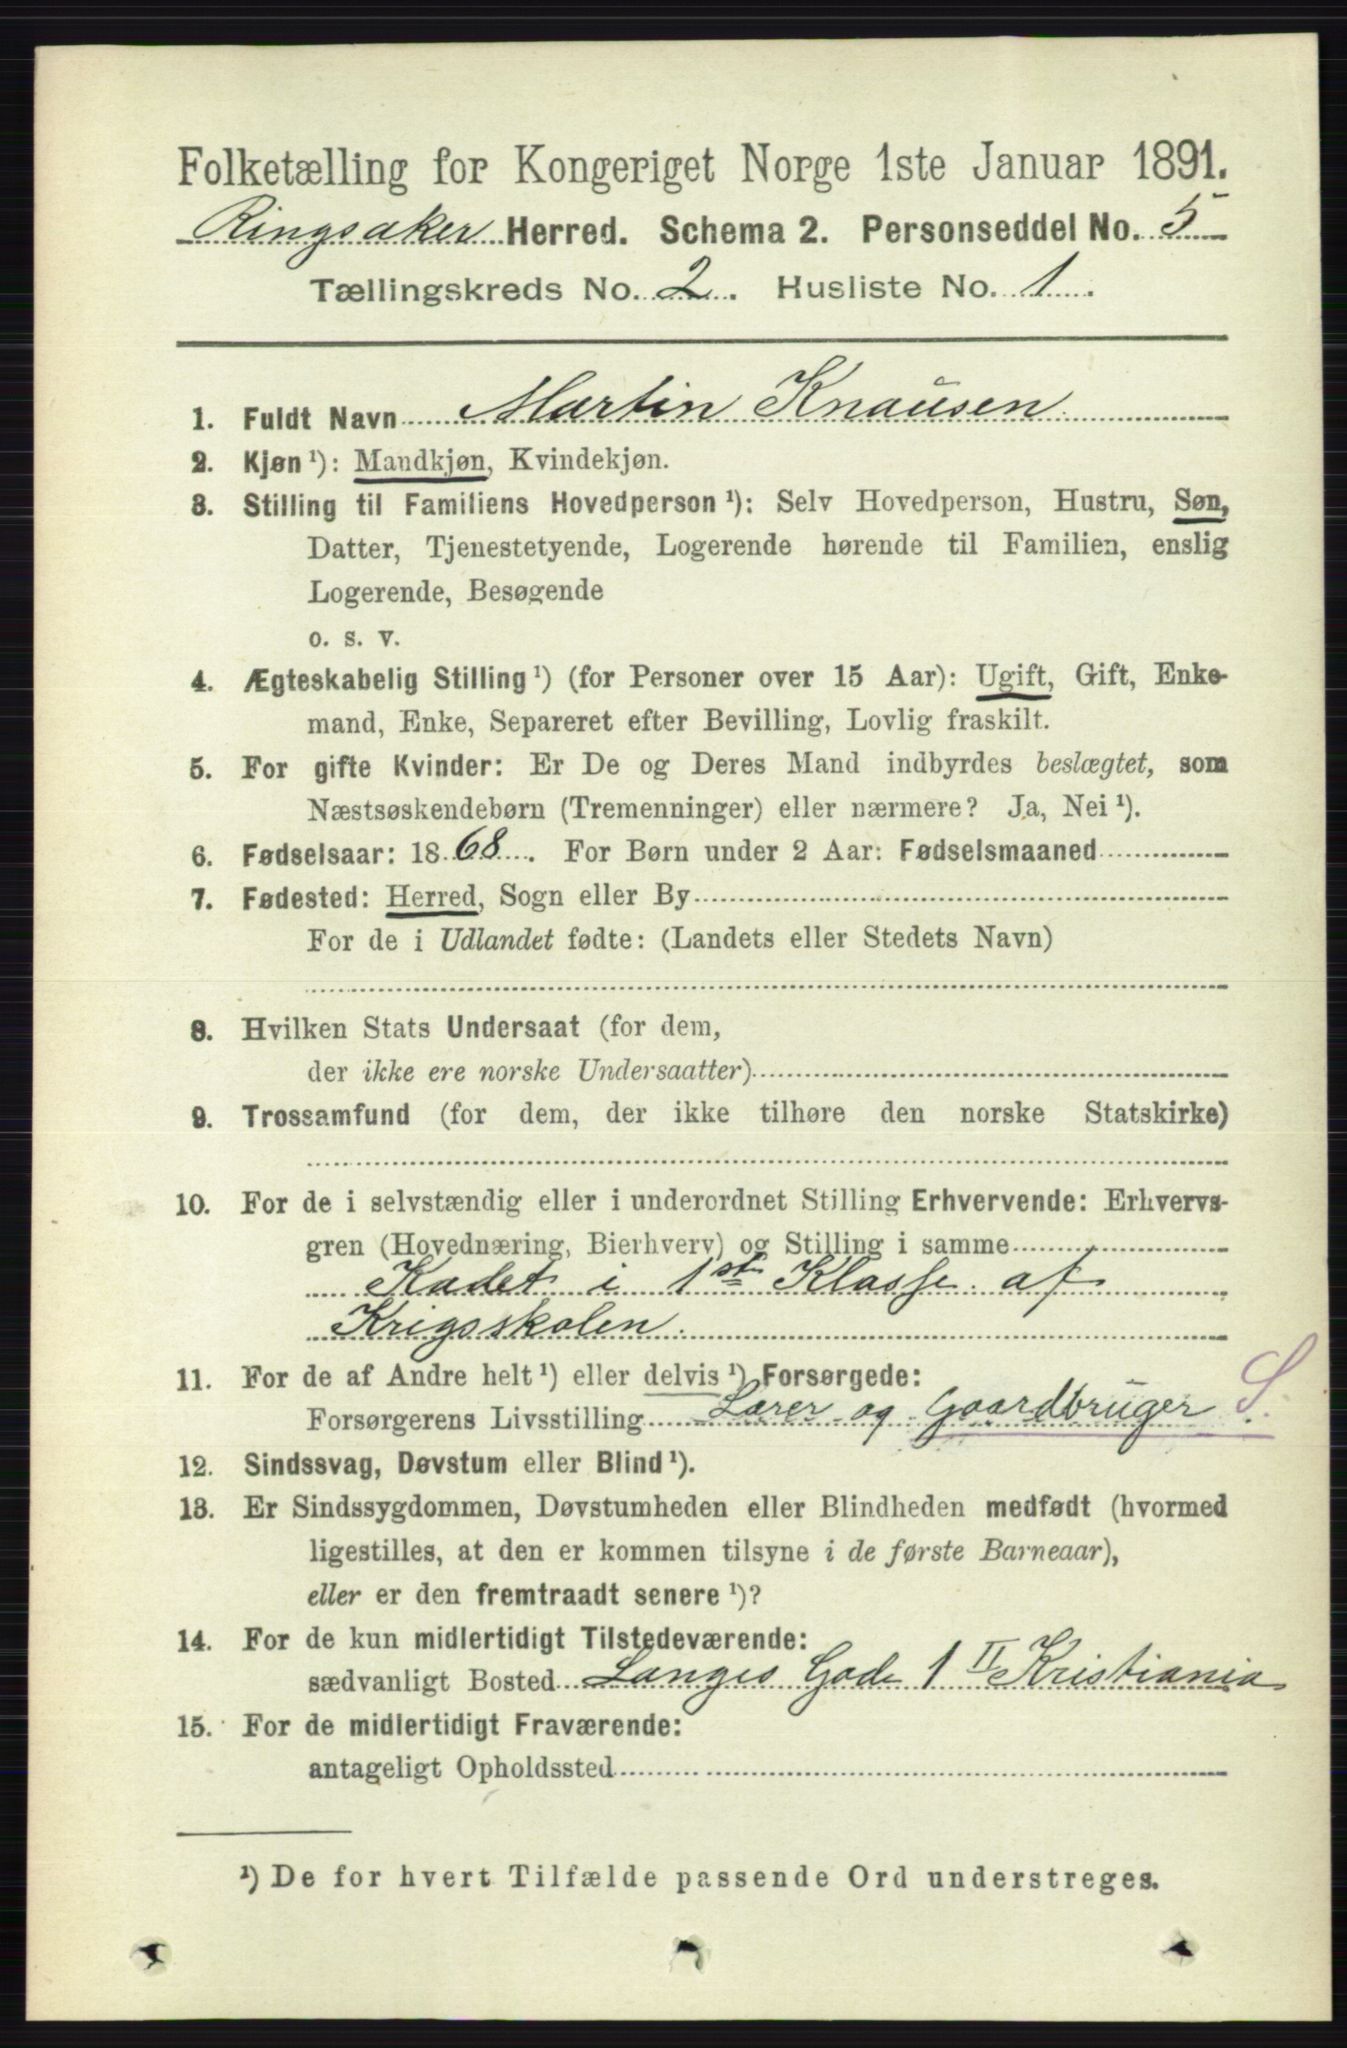 Folketælling for Kongeriget Norge 1ste Januar 1891.
Ringsaker Herred. Schema 2. Personseddel No. 5
Tællingskreds No. 2. Husliste No. 1.
1. Fuldt Navn Martin Knausen
2. Kjøn ¹): Mandkjøn, Kvindekjøn.
3. Stilling til Familiens Hovedperson ¹): Selv Hovedperson, Hustru, Søn,
Datter, Tjenestetyende, Logerende hørende til Familien, enslig
Logerende, Besøgende
o. s. v.
4. Ægteskabelig Stilling ¹) (for Personer over 15 Aar): Ugift, Gift, Enke-
mand, Enke, Separeret efter Bevilling, Lovlig fraskilt.
5. For gifte Kvinder: Er De og Deres Mand indbyrdes beslægtet, som
Næstsøskendebørn (Tremenninger) eller nærmere? Ja, Nei ¹).
6. Fødselsaar: 1868. For Børn under 2 Aar: Fødselsmaaned
7. Fødested: Herred, Sogn eller By
For de i Udlandet fødte: (Landets eller Stedets Navn)
8. Hvilken Stats Undersaat (for dem,
der ikke ere norske Undersaatter)
9. Trossamfund (for dem, der ikke tilhøre den norske Statskirke)
10. For de i selvstændig eller i underordnet Stilling Erhvervende: Erhvervs-
gren (Hovednæring, Bierhverv) og Stilling i samme
Kadet i 1ste Klasse af
Krigsskolen
11. For de af Andre helt ¹) eller delvis ¹) Forsørgede:
Forsørgerens Livsstilling Lærer og Gaardbruger S.
12. Sindssvag, Døvstum eller Blind ¹).
13. Er Sindssygdommen, Døvstumheden eller Blindheden medfødt (hvormed
ligestilles, at den er kommen tilsyne i de første Barneaar),
eller er den fremtraadt senere ¹)?
14. For de kun midlertidigt Tilstedeværende:
sædvanligt Bosted Langes Gade 1 II Kristiania
15. For de midlertidigt Fraværende:
antageligt Opholdssted
¹) De for hvert Tilfælde passende Ord understreges.